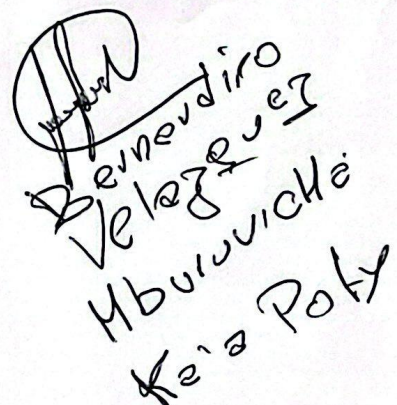 Bernerdino
Velazquez
Mburuvicha
Ka'a Poty